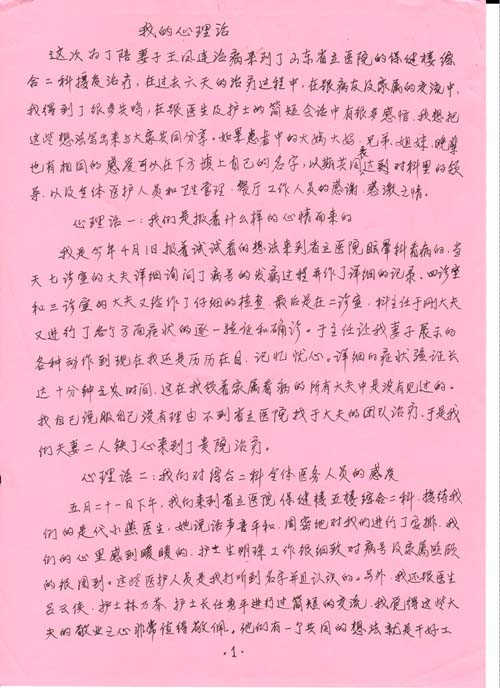 我的心理话
这次为了陪妻子王凤莲治病来到了山东省立医院的保健楼综
合二科接受治疗，在过去六天的治疗过程中，在跟病友及家属的交流中，
我得到了很多共鸣，在跟医生及护士的简短会话中有很多感悟。我想把
这些想法写出来与大家共同分享。如果患者中的大妈大婶、兄弟、姐妹、晚辈
也有相同的感受可以在下方填上自己的名字，以期共同表达到对科里的领
导、以及全体医护人员和卫生管理、餐厅工作人员的感谢感激之情。
心理话一：我们是报着什么样的心情而来的
我是今年4月1日报着试试看的想法来到省立医院眩晕科看病的，当
天七诊室的大夫详细询问了病号的发病过程并作了详细的记录。四诊室
和三诊室的大夫又给作了仔细的检查，最后是在二诊室，科主任于刚大夫
又进行了各个方面症状的逐一验证和确诊。于主任让我妻子展示的
各种动作到现在我还是历历在目，记忆忧心。详细的症状验证长
达十分钟左右时间，这在我领着家属看病的所有大夫中是没有见过的。
我自己说服自己没有理由不到省立医院找于大夫的团队治疗，于是我
们夫妻二人铁了心来到了贵院治疗。
心理话二：我们对综合二科全体医务人员的感受
五月二十一日下午，我们来到省立医院保健楼五楼综合二科，接待我
们的是代小燕医生，她说话声音平和，周密地对我们进行了安排，我
们的心里感到暖暖的，护士生明珠工作很细致对病号及家属照顾
的很周到。这些医护人员是我打听到名字并且认识的。另外，我还跟医生
吕云侠、护士林乃芬、护士长任秀平进行过简短的交流，我觉得这些大
夫的敬业之心非常值得敬佩。他们有一个共同的想法就是干好工
·1·